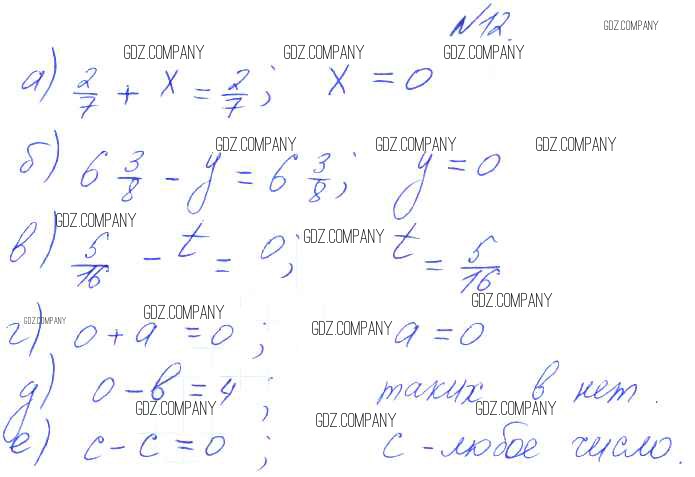 №12.
GDZ.COMPANY
GDZ.COMPANY GDZ.COMPANY GDZ.COMPANY
а) 2/7 + x = 2/7; x = 0
GDZ.COMPANY GDZ.COMPANY GDZ.COMPANY
б) 6 3/8 - y = 6 3/8; y = 0
GDZ.COMPANY GDZ.COMPANY
в) 5/16 - t = 0; t = 5/16
GDZ.COMPANY GDZ.COMPANY GDZ.COMPANY GDZ.COMPANY
г) 0 + a = 0; a = 0
д) 0 - в = 4; таких в нет.
GDZ.COMPANY GDZ.COMPANY GDZ.COMPANY
е) c - c = 0; c - любое число.